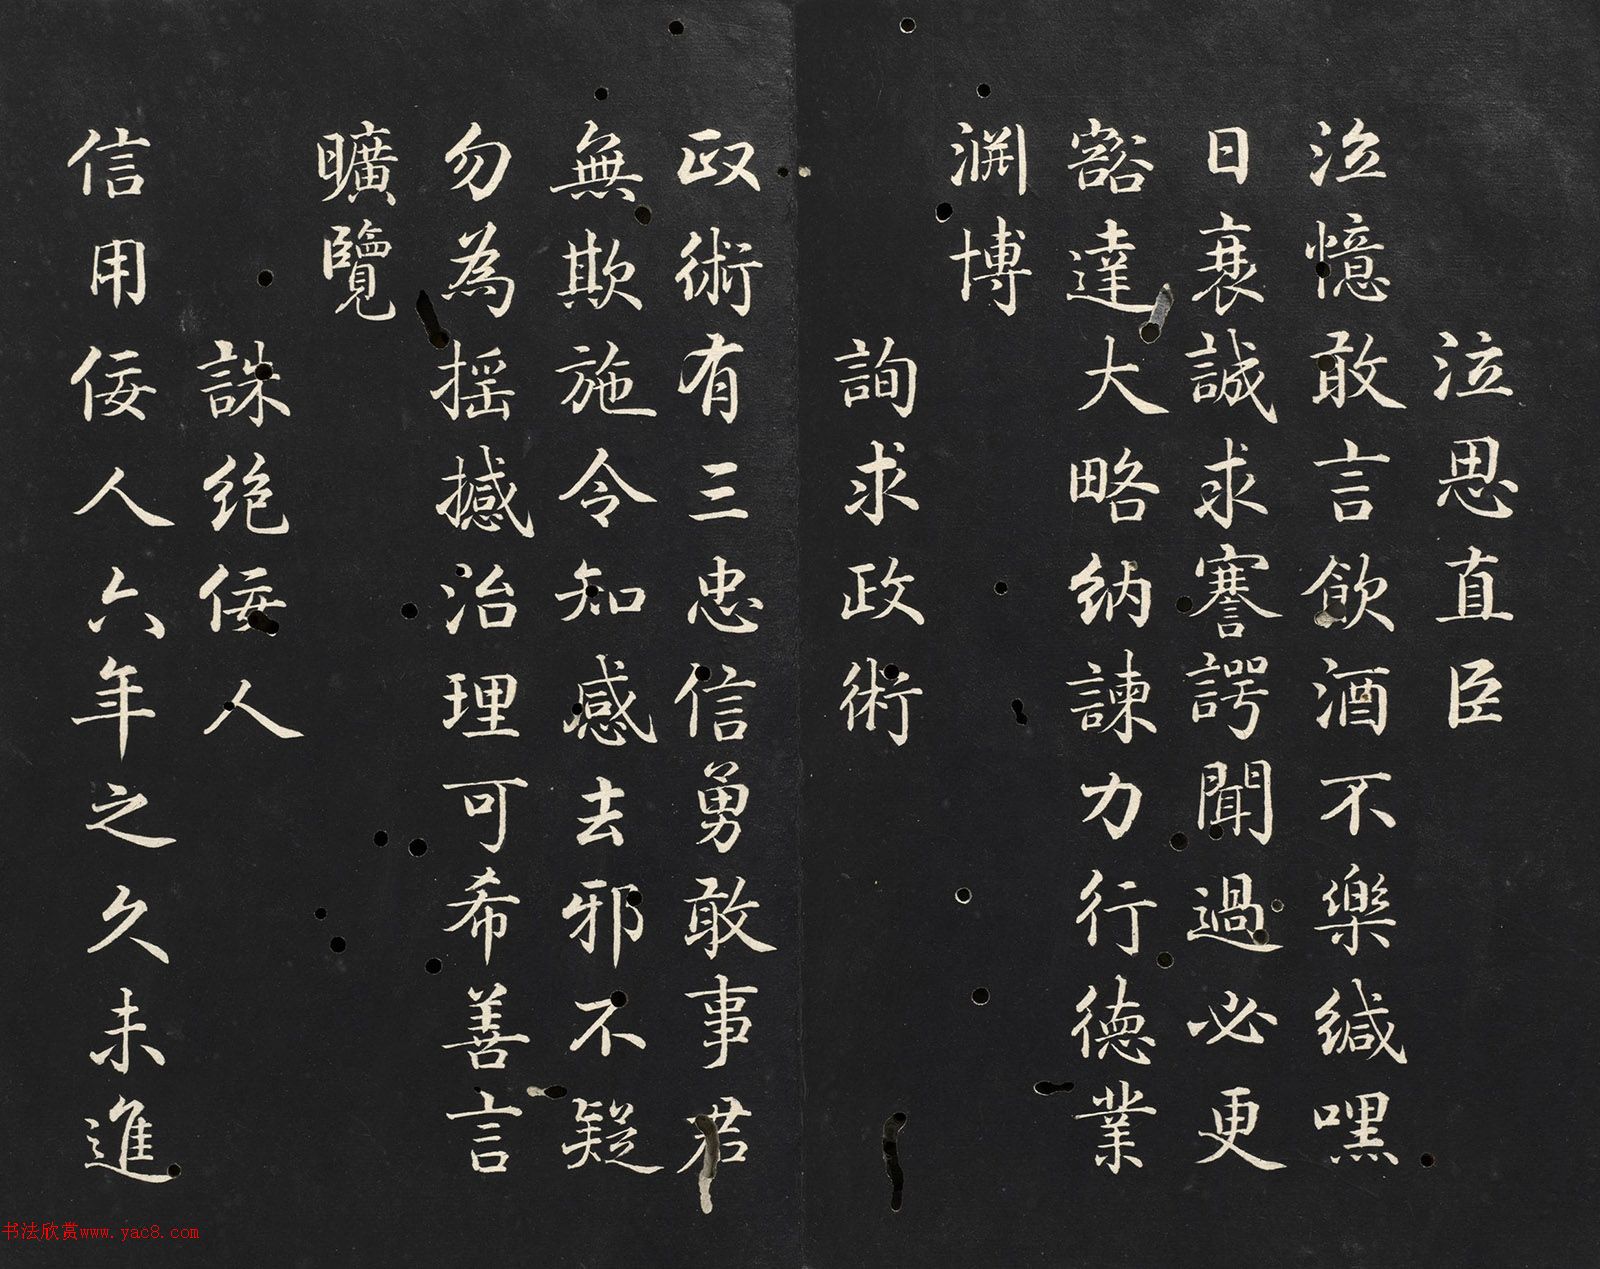 泣思直臣
泣憶敢言飲酒不樂緘嘿
日衰誠求謇諤聞過必更
豁達大略納諫力行德業
淵博
詢求政術
政術有三忠信勇敢事君
無欺施令知感去邪不疑
勿為摇撼治理可希善言
曠覽
誅絶佞人
信用佞人六年之久未進
书法欣赏www.yac8.com